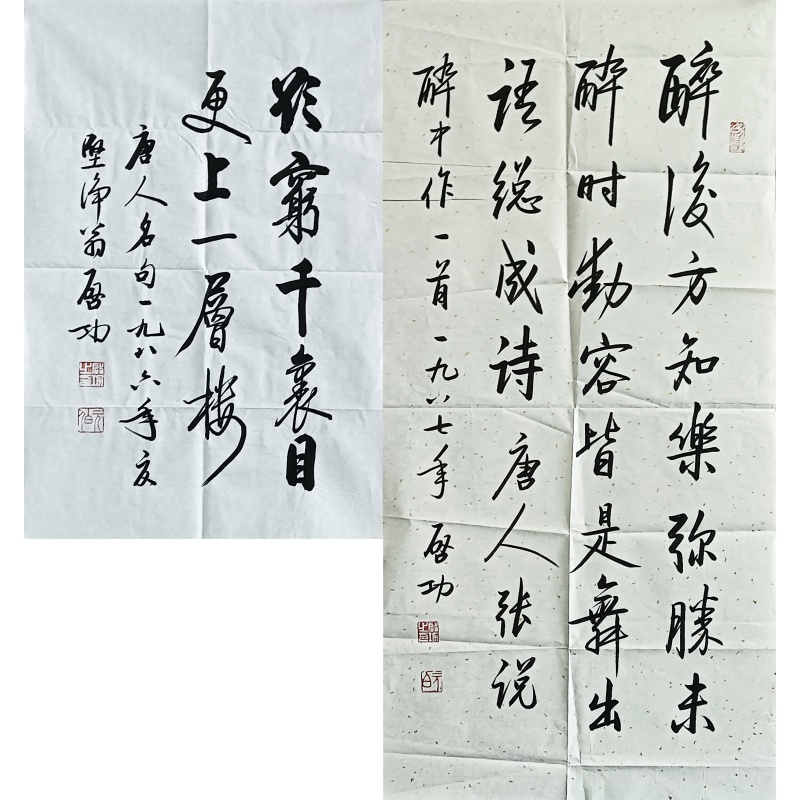 欲窮千裏目
更上一層楼
唐人名句一九八六年夏
堅净翁启功
醉後方知樂弥勝未
醉时動容皆是舞出
语總成诗唐人张说
醉中作一首一九八七年启功